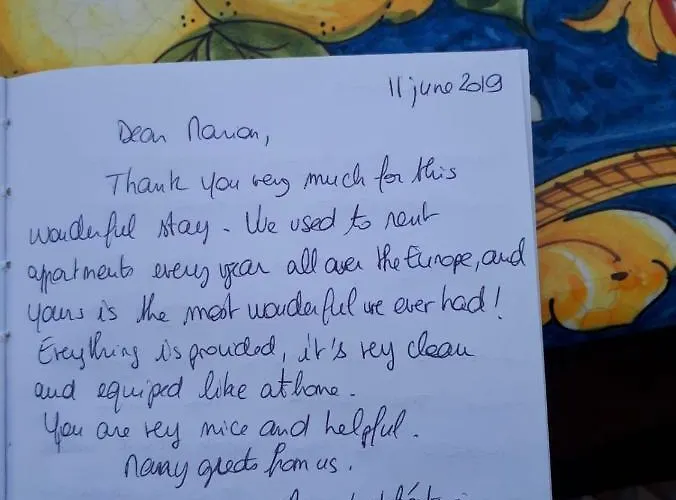 11 june 2019
Dear Marion,
Thank you very much for this
wonderful stay. We used to rent
appartments every year all over the Europe, and
yours is the most wonderful we ever had!
Everything is provided, it's very clean
and equiped like at home.
You are very nice and helpful.
Many greets from us.